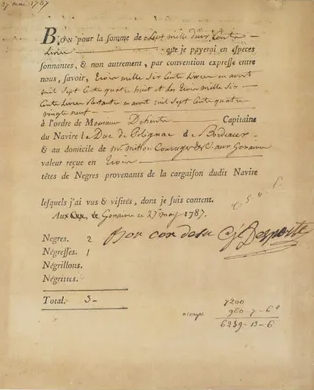 27 mai 1787
Bon pour la somme de Sept mille deux Cents
Livres que je payerai en especes
sonnantes, & non autrement, par convention expresse entre
nous, savoir, trois mille Six Cents Livres en avril
mil Sept Cents quatre huit et les trois mille Six
Cents Livres restant en avril mil Sept Cents quatre
vingt neuf
à l'ordre de Monsieur Capitaine
du Navire Le Duc de Polignac de Bordeaux
& au domicile de aux Gonaives
valeur reçue en trois
têtes de Negres provenants de la cargaison dudit Navire
lesquels j'ai vus & visités, dont je suis content.
Aux Gonaives ce 27 may 1787.
Négres. 2
Négresses. 1
Négrillons.
Négrites.
Total: 3
Bon
7200
960-7-6
6239-13-6